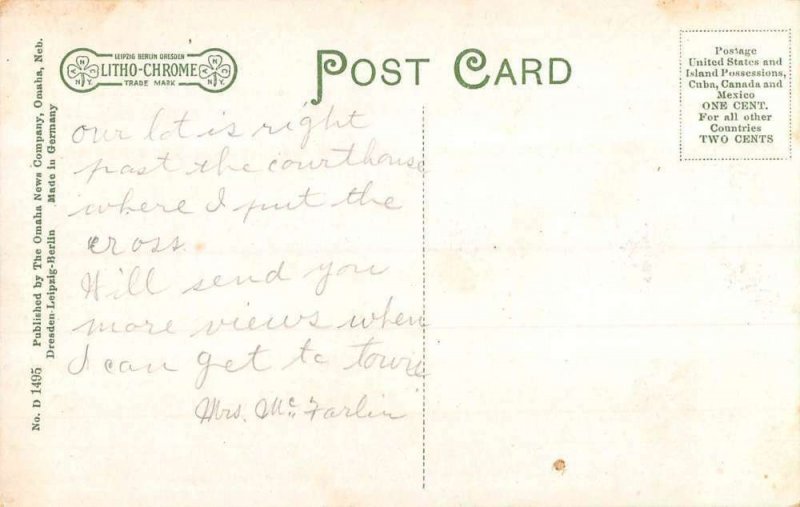 LEIPZIG BERLIN DRESDEN
LITHO-CHROME
TRADE MARK
POST CARD
Postage
United States and
Island Possessions,
Cuba, Canada and
Mexico
ONE CENT.
For all other
Countries
TWO CENTS
No. D 1495 Published by The Omaha News Company, Omaha, Neb.
Dresden-Leipzig-Berlin Made in Germany
our lot is right
past the courthouse
where I put the
cross.
Will send you
more views when
I can get to town
Mrs. McFarlin